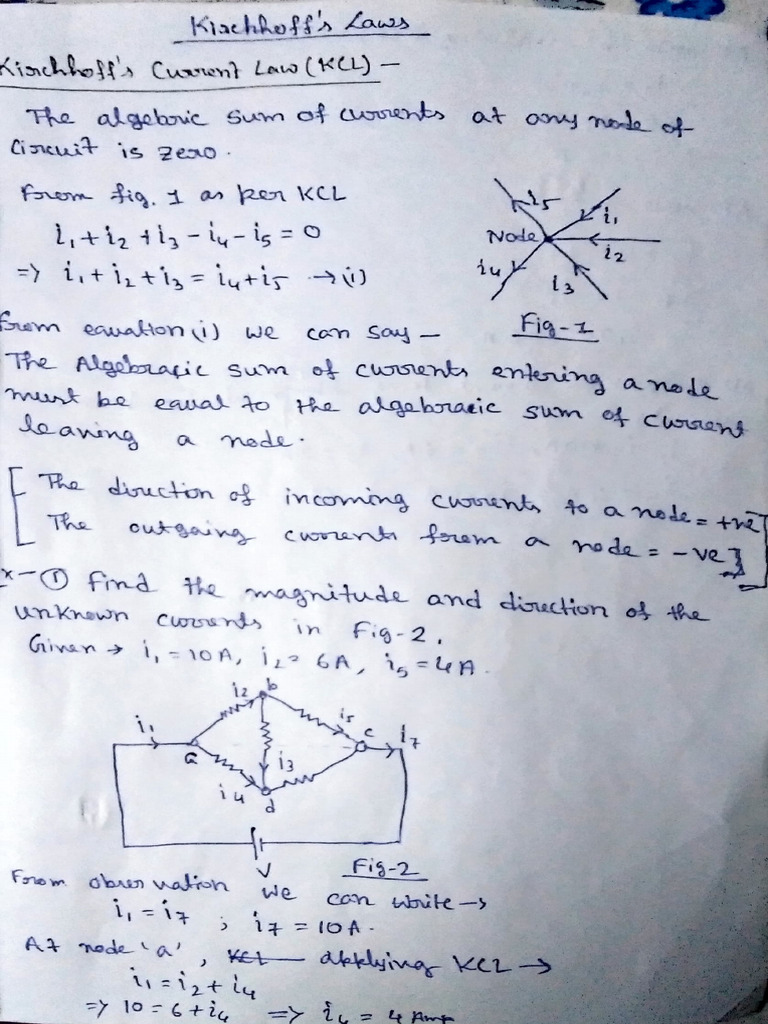 Kirchhoff's Laws
Kirchhoff's Current Law (KCL) —
The algebric sum of currents at any node of
Circuit is zero.
From fig. 1 as per KCL
i₁ + i₂ + i₃ - i₄ - i₅ = 0
=> i₁ + i₂ + i₃ = i₄ + i₅ → (i)
i₅
i₁
Node
i₂
i₄
i₃
Fig-1
From equation (i) we can say —
The Algebraic sum of currents entering a node
must be equal to the algebraic sum of current
leaving a node.
[ The direction of incoming currents to a node = +ve
The outgoing currents from a node = -ve ]
x- ① Find the magnitude and direction of the
unknown currents in Fig-2.
Given → i₁ = 10A, i₂ = 6A, i₅ = 4A.
i₂ b
i₅
i₁
a
c
i₇
i₃
i₄
d
V
Fig-2
From obser vation we can write →
i₁ = i₇ ; i₇ = 10A.
At node 'a', KCL applying KCL →
i₁ = i₂ + i₄
=> 10 = 6 + i₄ => i₄ = 4 Amp